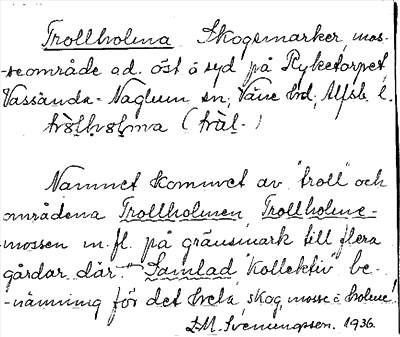 Trollholma Skogsmarker, mos-
-seområde ad. öst o syd på Ryketorpet,
Vassända-Naglum sn, Väne hrd, Älfsb. l.
tròlhòlma (tràl-)
Namnet kommet av "troll" och
områdena Trollholmen, Trollholme-
-mossen m. fl. på gränsmark till flera
gårdar där. - Samlad "kollektiv" be-
-nämning för det hela, skog, mosse o holme!
D.M. Svenungsson. 1936.